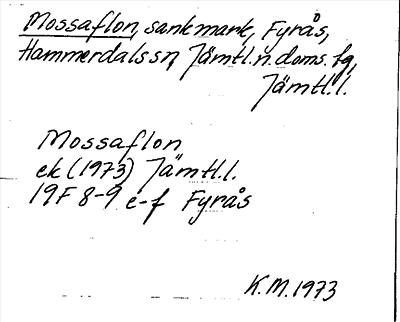 Mossaflon, sankmark, Fyrås,
Hammerdals sn, Jämtl. n. doms. tg,
Jämtl. l.
Mossaflon
ek (1973) Jämtl. l.
19F 8-9 e-f Fyrås
K.M. 1973